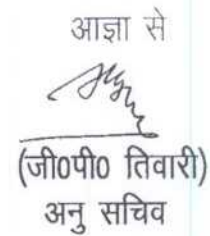 आज्ञा से
(जी0पी0 तिवारी)
अनु सचिव